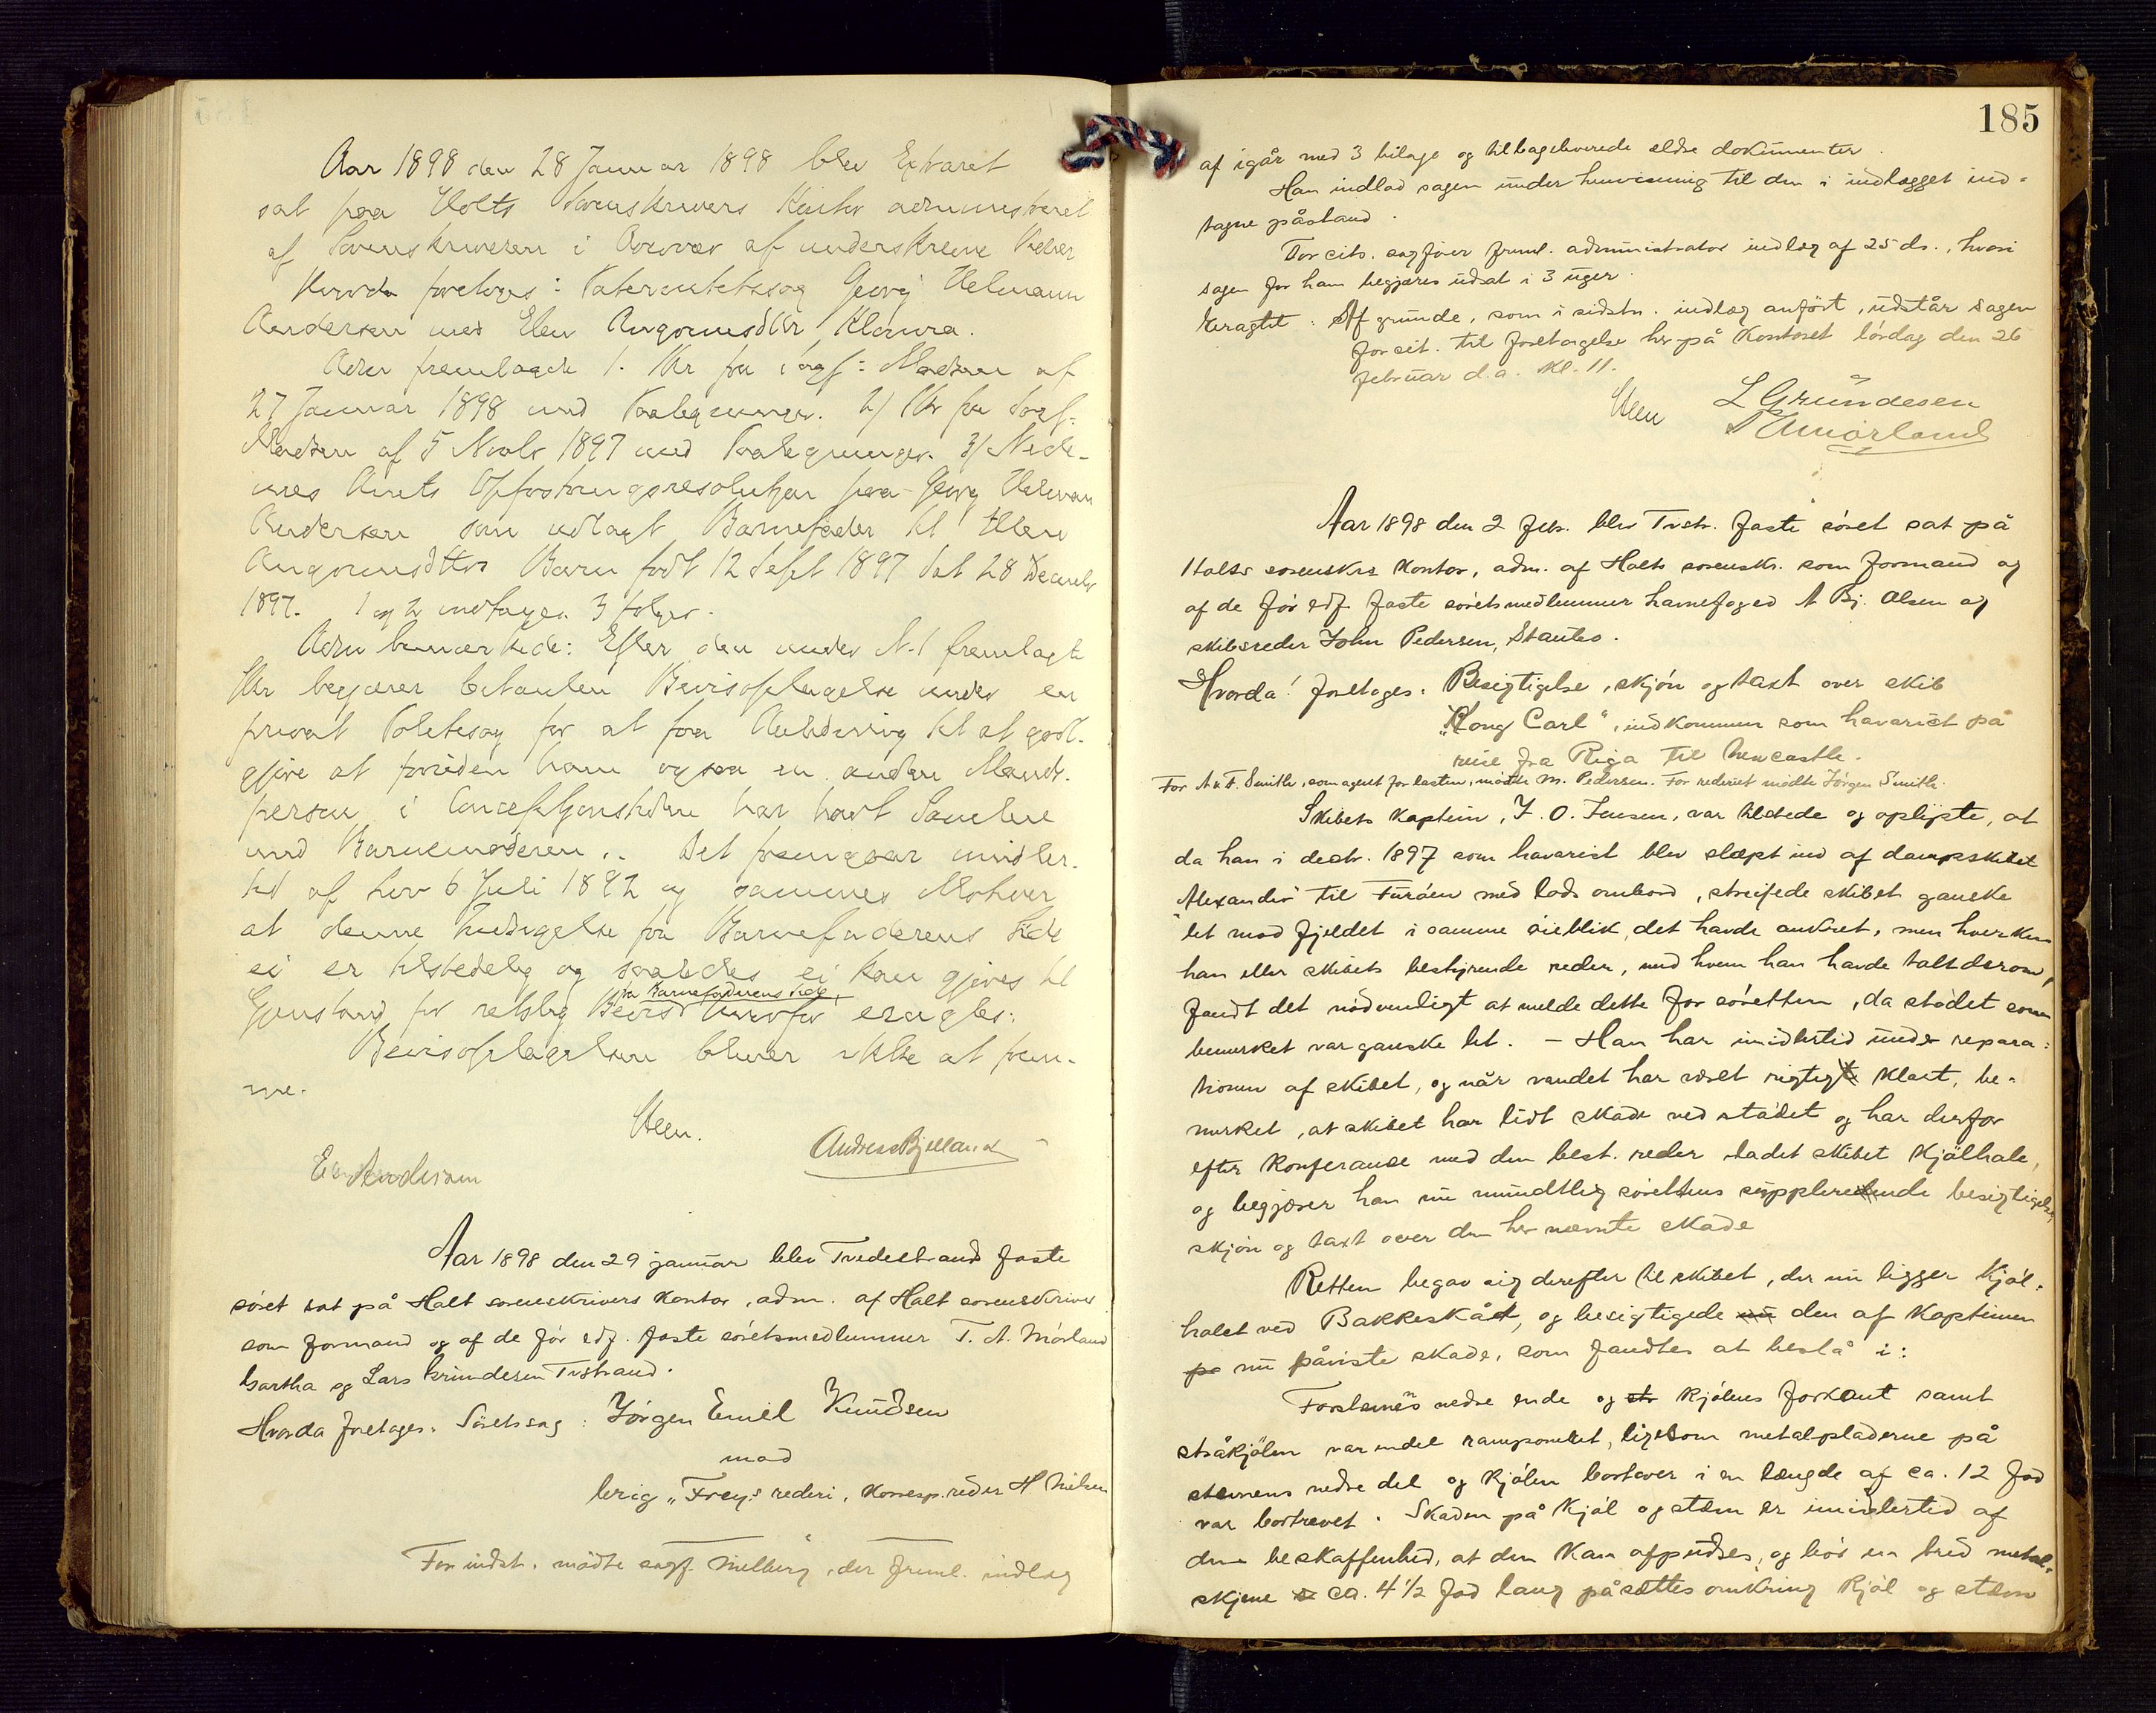 Aar 1898 den 28 Januar 1898 blev Extraret
sat paa Holts Sorenskrivers Kontor administreret
af Sorenskriveren i Overvær af underskrevne Vidner
Hvorda foretoges: Paternitetssag Georg Helmann
Andersen med Elen Angormsdtr Klovra.
Adm fremlagde 1. Skr fra Sagf: Madsen af
27 Januar 1898 med Paategninger. 2/ Skr fra Sagf:
Madsen af 5 Novbr 1897 med Paategninger. 3/ Nede-
nes Amts Opfostringsresolution paa Georg Helman
Andersen som udlagt Barnefader til Elen
Angormsdtters Barn født 12 Septr 1897 dat 28 Decembr
1897. 1 og 2 indtages 3 følger.
Adm bemærkede: Efter den under N. 1 fremlagte
Skr begjærer Bevisoptagelse under en
privat Politisag for at faa Anledning til at godt-
gjøre at foruden ham ogsaa en anden Mands-
person i Conceptionstiden har havt Samleie
med Barnemoderen. Det fremgaar imidler-
tid af Lov 6 Juli 1892 og sammes Motiver
at denne Indsigelse fra Barnefaderens Side
ei er tilstedelig og saaledes ei kan gjøres til
fra Barnefaderens Side
Gjenstand for retslig Bevis hvorfor eragtes:
Bevisoptagelsen bliver ikke at frem-
me.
Steen.
Andreas Bjelland
E. Andersen
Aar 1898 den 29 januar blev Tvedestrand faste
søret sat på Holt sorenskrivers kontor, adm. af Holt sorenskriver
som formand og af de før edf. faste søretsmedlemmer T. A. Mørland
Gartha og Lars Gründesen Tvstrand.
Hvorda foretages: Søretssag: Jørgen Emil Knudsen
mod
brig „Frey“s rederi, korresp. reder H Nielsen
For indst. mødte sagf. Melberg, der freml. indlæg
185
af igår med 3 bilage og tilbageleverede eldre dokumenter.
Han indlod sagen under henvisning til den i indlægget ind-
tagne påstand.
For cits. sagfører freml. administrator indlæg af 25 ds., hvori
sagen for ham begjæres udsat i 3 uger.
Eragtet: Af grunde, som i sidstn. indlæg anført, udstår sagen
for cit. til foretagelse her på kontoret lørdag den 26
februar d.a. kl. 11.
Steen L Gründesen
T A Mørland
Aar 1898 den 2 feb. blev Tvstr. faste søret sat på
Holts sorenskrs kontor, adm. af Holts sorenskr. som formand og
af de før edf. faste søretsmedlemmer havnefoged A Bj. Olsen og
skibsreder John Pedersen, Stautes.
Hvorda! foretages: Besigtigelse, skjøn og taxt over skib
„Kong Carl“, indkommen som havarist på
reise fra Riga til Newcastle.
For A & F. Smith, som agent for lasten, mødte M. Pedersen. For rederiet mødte Jørgen Smith.
Skibets kaptein, J. O. Jensen, var tilstede og oplyste, at
da han i decbr. 1897 som havarist blev slæpt ind af dampskibet
„Alexander“ til Furøen med lods ombord, streifede skibet ganske
let mod fjeldet i samme øieblik, det havde ankret, men hverken
han eller skibets bestyrende reder, med hvem han havde talt derom,
fandt det nødvendigt at melde dette for søretten, da stødet som
bemerket var ganske let. – Han har imidlertid under repara-
tionen af skibet, og når vandet har været rigtigt klart, be-
merket, at skibet har lidt skade ved stødet og har derfor
efter konferance med den best. reder ladet skibet kjølhale,
og begjærer han nu mundtlig sørettens supplerende besigtigelse,
skjøn og taxt over den her nævnte skade
Retten begav sig derefter til skibet, der nu ligger kjøl-
halet ved Bakkeskåt, og besigtigede nu den af kapteinen
pe nu påviste skade, som fandtes at bestå i:
Forstevnens nedre ende og st kjølens forkant samt
stråkjølen var endel ramponeret, ligesom metalpladerne på
stevnens nedre del og kjølen bortover i en længde af ca. 12 fod
var bortrevet. Skaden på kjøl og stævn er imidlertid af
den beskaffenhed, at den kan afpudses, og bør en bred metal-
skjene ca. 4 1/2 fod lang påsættes omkring kjøl og stævn